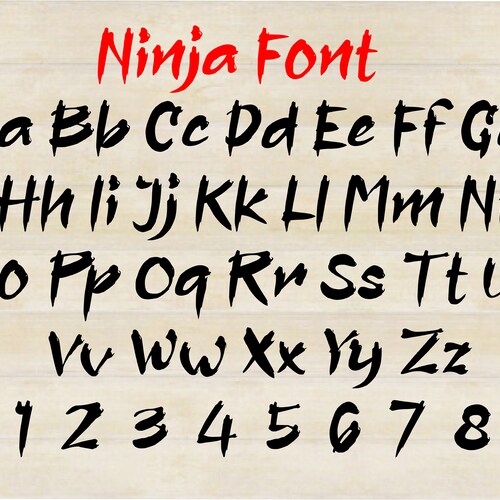 Ninja Font
a Bb Cc Dd Ee Ff G
Hh Ii Jj Kk Ll Mm N
o Pp Qq Rr Ss Tt
Vv Ww Xx Yy Zz
1 2 3 4 5 6 7 8